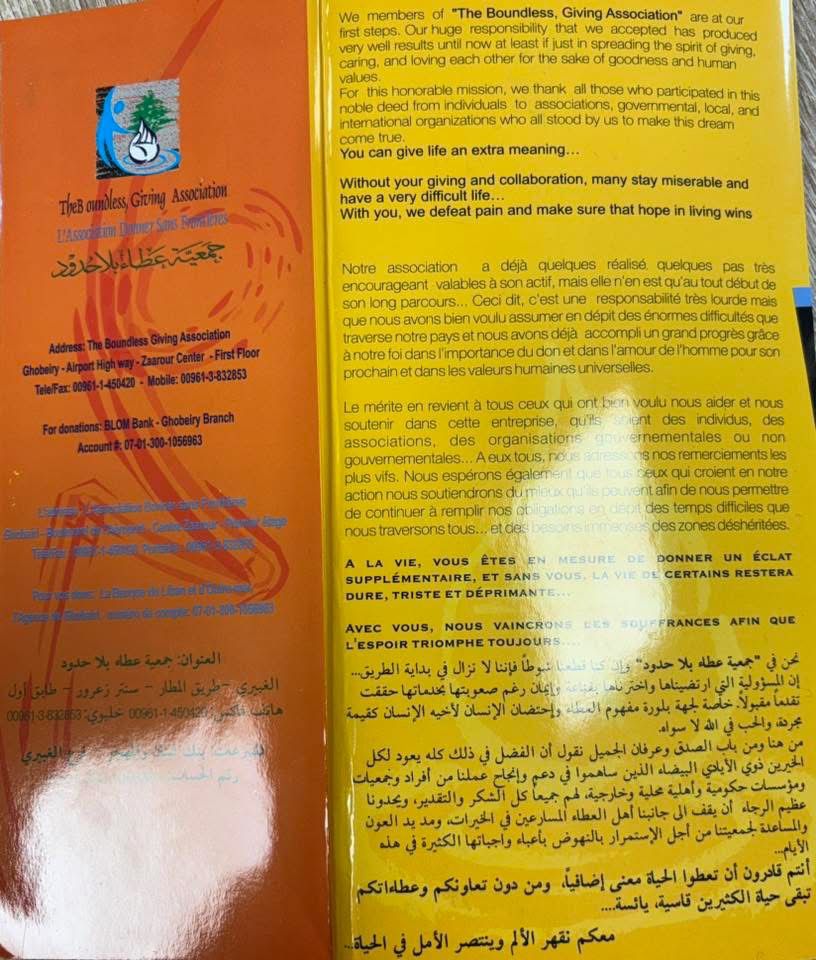 TheBoundless, Giving Association
L'Association Donner Sans Frontières
جمعيّة عطاء بلا حدود
Address: The Boundless Giving Association
Ghobeiry - Airport High way - Zaarour Center - First Floor
Tele/Fax: 00961-1-450420 - Mobile: 00961-3-832853
For donations: BLOM Bank - Ghobeiry Branch
Account #: 07-01-300-1056963
L'adresse: L'Association Donner sans Frontières
Centre Zaarour - Premier étage
00961-1-450420, 00961-3-832853
Pour vos dons: La Banque du Liban et d'Outre-mer,
numéro de compte: 07-01-300-1056963
العنوان: جمعية عطاء بلا حدود
الغبيري - طريق المطار - سنتر زعرور - طابق أول
هاتف فاكس: 00961-1-450420 خليوي: 00961-3-832853
للتبرعات: بنك لبنان والمهجر - فرع الغبيري
رقم الحساب:
We members of "The Boundless, Giving Association" are at our
first steps. Our huge responsibility that we accepted has produced
very well results until now at least if just in spreading the spirit of giving,
caring, and loving each other for the sake of goodness and human
values.
For this honorable mission, we thank all those who participated in this
noble deed from individuals to associations, governmental, local, and
international organizations who all stood by us to make this dream
come true.
You can give life an extra meaning...
Without your giving and collaboration, many stay miserable and
have a very difficult life...
With you, we defeat pain and make sure that hope in living wins
Notre association a déjà quelques réalisé quelques pas très
encourageant valables à son actif, mais elle n'en est qu'au tout début de
son long parcours... Ceci dit, c'est une responsabilité très lourde mais
que nous avons bien voulu assumer en dépit des énormes difficultés que
traverse notre pays et nous avons déjà accompli un grand progrès grâce
à notre foi dans l'importance du don et dans l'amour de l'homme pour son
prochain et dans les valeurs humaines universelles.
Le mérite en revient à tous ceux qui ont bien voulu nous aider et nous
soutenir dans cette entreprise, qu'ils soient des individus, des
associations, des organisations gouvernementales ou non
gouvernementales... A eux tous, nous adressons nos remerciements les
plus vifs. Nous espérons également que tous ceux qui croient en notre
action nous soutiendrons du mieux qu'ils peuvent afin de nous permettre
de continuer à remplir nos obligations en dépit des temps difficiles que
nous traversons tous... et des besoins immenses des zones déshéritées.
A LA VIE, VOUS ÊTES EN MESURE DE DONNER UN ÉCLAT
SUPPLÉMENTAIRE, ET SANS VOUS, LA VIE DE CERTAINS RESTERA
DURE, TRISTE ET DÉPRIMANTE...
AVEC VOUS, NOUS VAINCRONS LES SOUFFRANCES AFIN QUE
L'ESPOIR TRIOMPHE TOUJOURS....
نحن في "جمعية عطاء بلا حدود" وإن كنا قطعنا شوطاً فإننا لا نزال في بداية الطريق...
إن المسؤولية التي ارتضيناها واخترناها بقناعة وإيمان رغم صعوبتها بخدماتها حققت
تقدماً مقبولاً. خاصة لجهة بلورة مفهوم العطاء وإحتضان الإنسان لأخيه الإنسان كقيمة
مجردة، والحب في الله لا سواه.
من هنا ومن باب الصدق وعرفان الجميل نقول أن الفضل في ذلك كله يعود لكل
الخيرين ذوي الأيادي البيضاء الذين ساهموا في دعم وإنجاح عملنا من أفراد وجمعيات
ومؤسسات حكومية وأهلية محلية وخارجية، لهم جميعاً كل الشكر والتقدير، ويحدونا
عظيم الرجاء أن يقف الى جانبنا أهل العطاء المسارعين في الخيرات، ومد يد العون
والمساعدة لجمعيتنا من أجل الإستمرار بالنهوض بأعباء واجباتها الكثيرة في هذه
الأيام...
أنتم قادرون أن تعطوا الحياة معنى إضافياً، ومن دون تعاونكم وعطاءاتكم
تبقى حياة الكثيرين قاسية، يائسة....
معكم نقهر الألم وينتصر الأمل في الحياة...